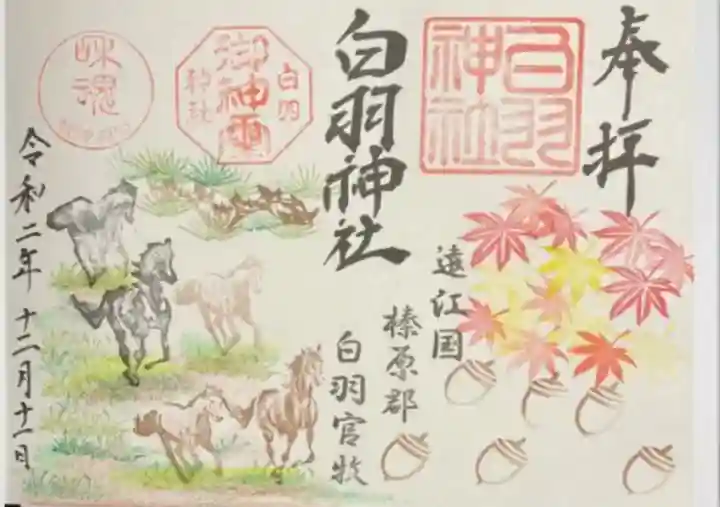 奉拝
白羽神社
白羽神社
遠江国
榛原郡
白羽官牧
白羽
御神霊
神社
令和二年 十二月十一日